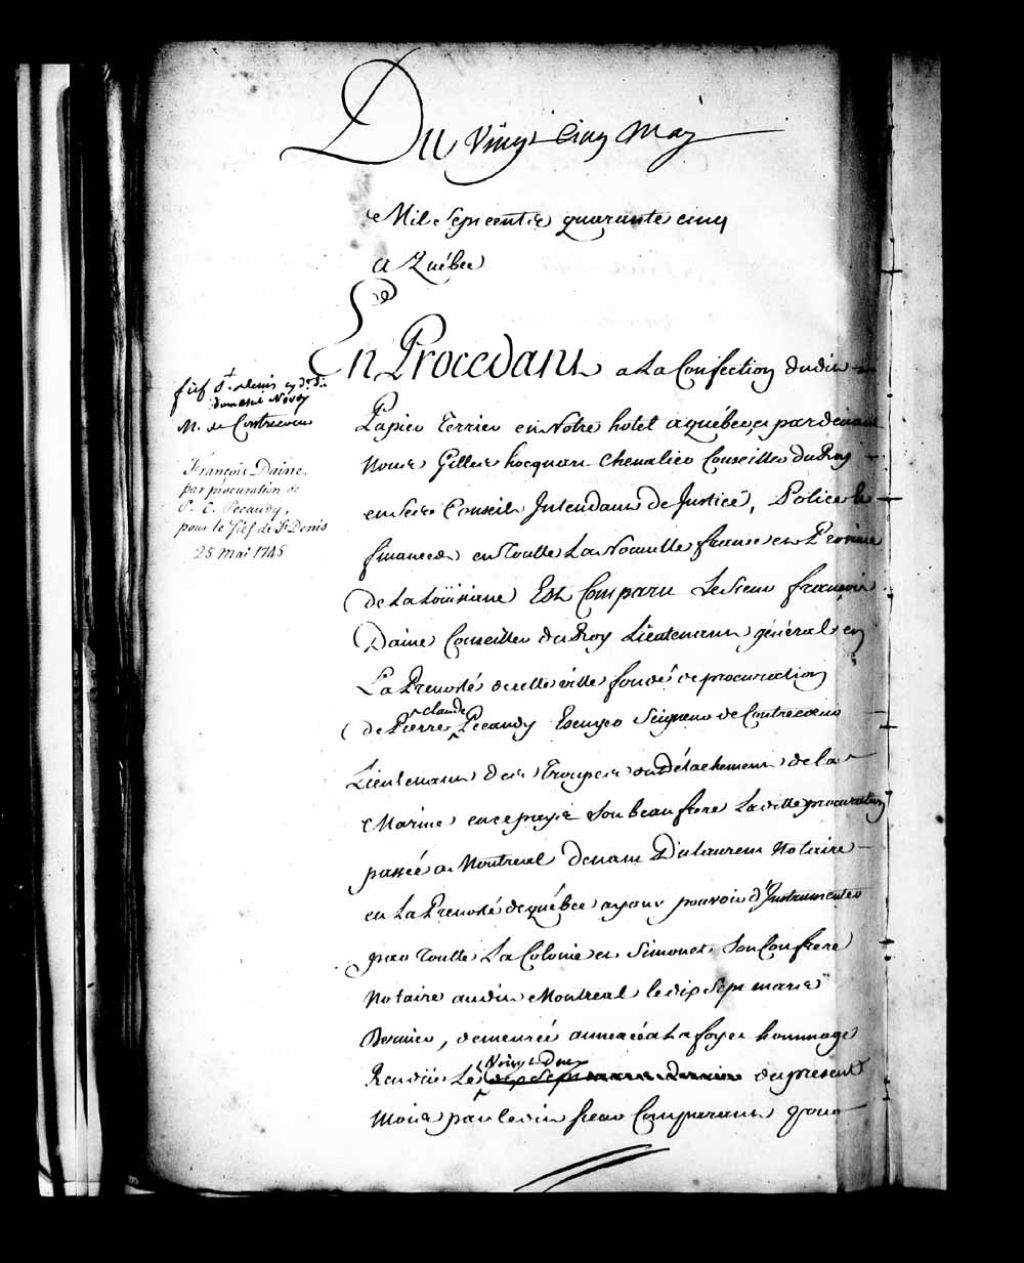 Du Vingt Cinq May
Mil Sept cents quarante cinq
a Québec
En Procedant a La Confection dudit
fief St. denis
M. de Contrecoeur
Papier Terrier en Notre hotel a québec, pardevant
Nous Gilles hocquart Chevalier Conseiller du Roy
François Daine,
par procuration de
P. C. Pécaudy,
pour le fief de St Denis
25 mai 1745
en Ses Conseils Intendant de Justice, Police &
finances en Toutte La Nouvelle france et Province
de La Loüisiane Est Comparu Le Sieur françois
Daine Conseiller du Roy Lieutenant général en
La Prevosté de cette ville fondé de procuration
de Pierre Claude Pecaudy Escuyer Seigneur de Contrecoeur
Lieutenant des Troupes du Détachement de la
Marine en ce pays Son beau frere Laditte procuration
passée a Montreal devant Dulaurent Notaire
en La Prevosté de québec ayant pouvoir d'Instrumenter
par Toutte La Colonie et Simonet Son Confrere
Notaire audit Montreal le dix Sept mars
Dernier, demeurée annexée a La foy et hommage
Rendus Le Vingt Deux dix Sept mars dernier du present
Mois par ledit Sieur Comparant pour